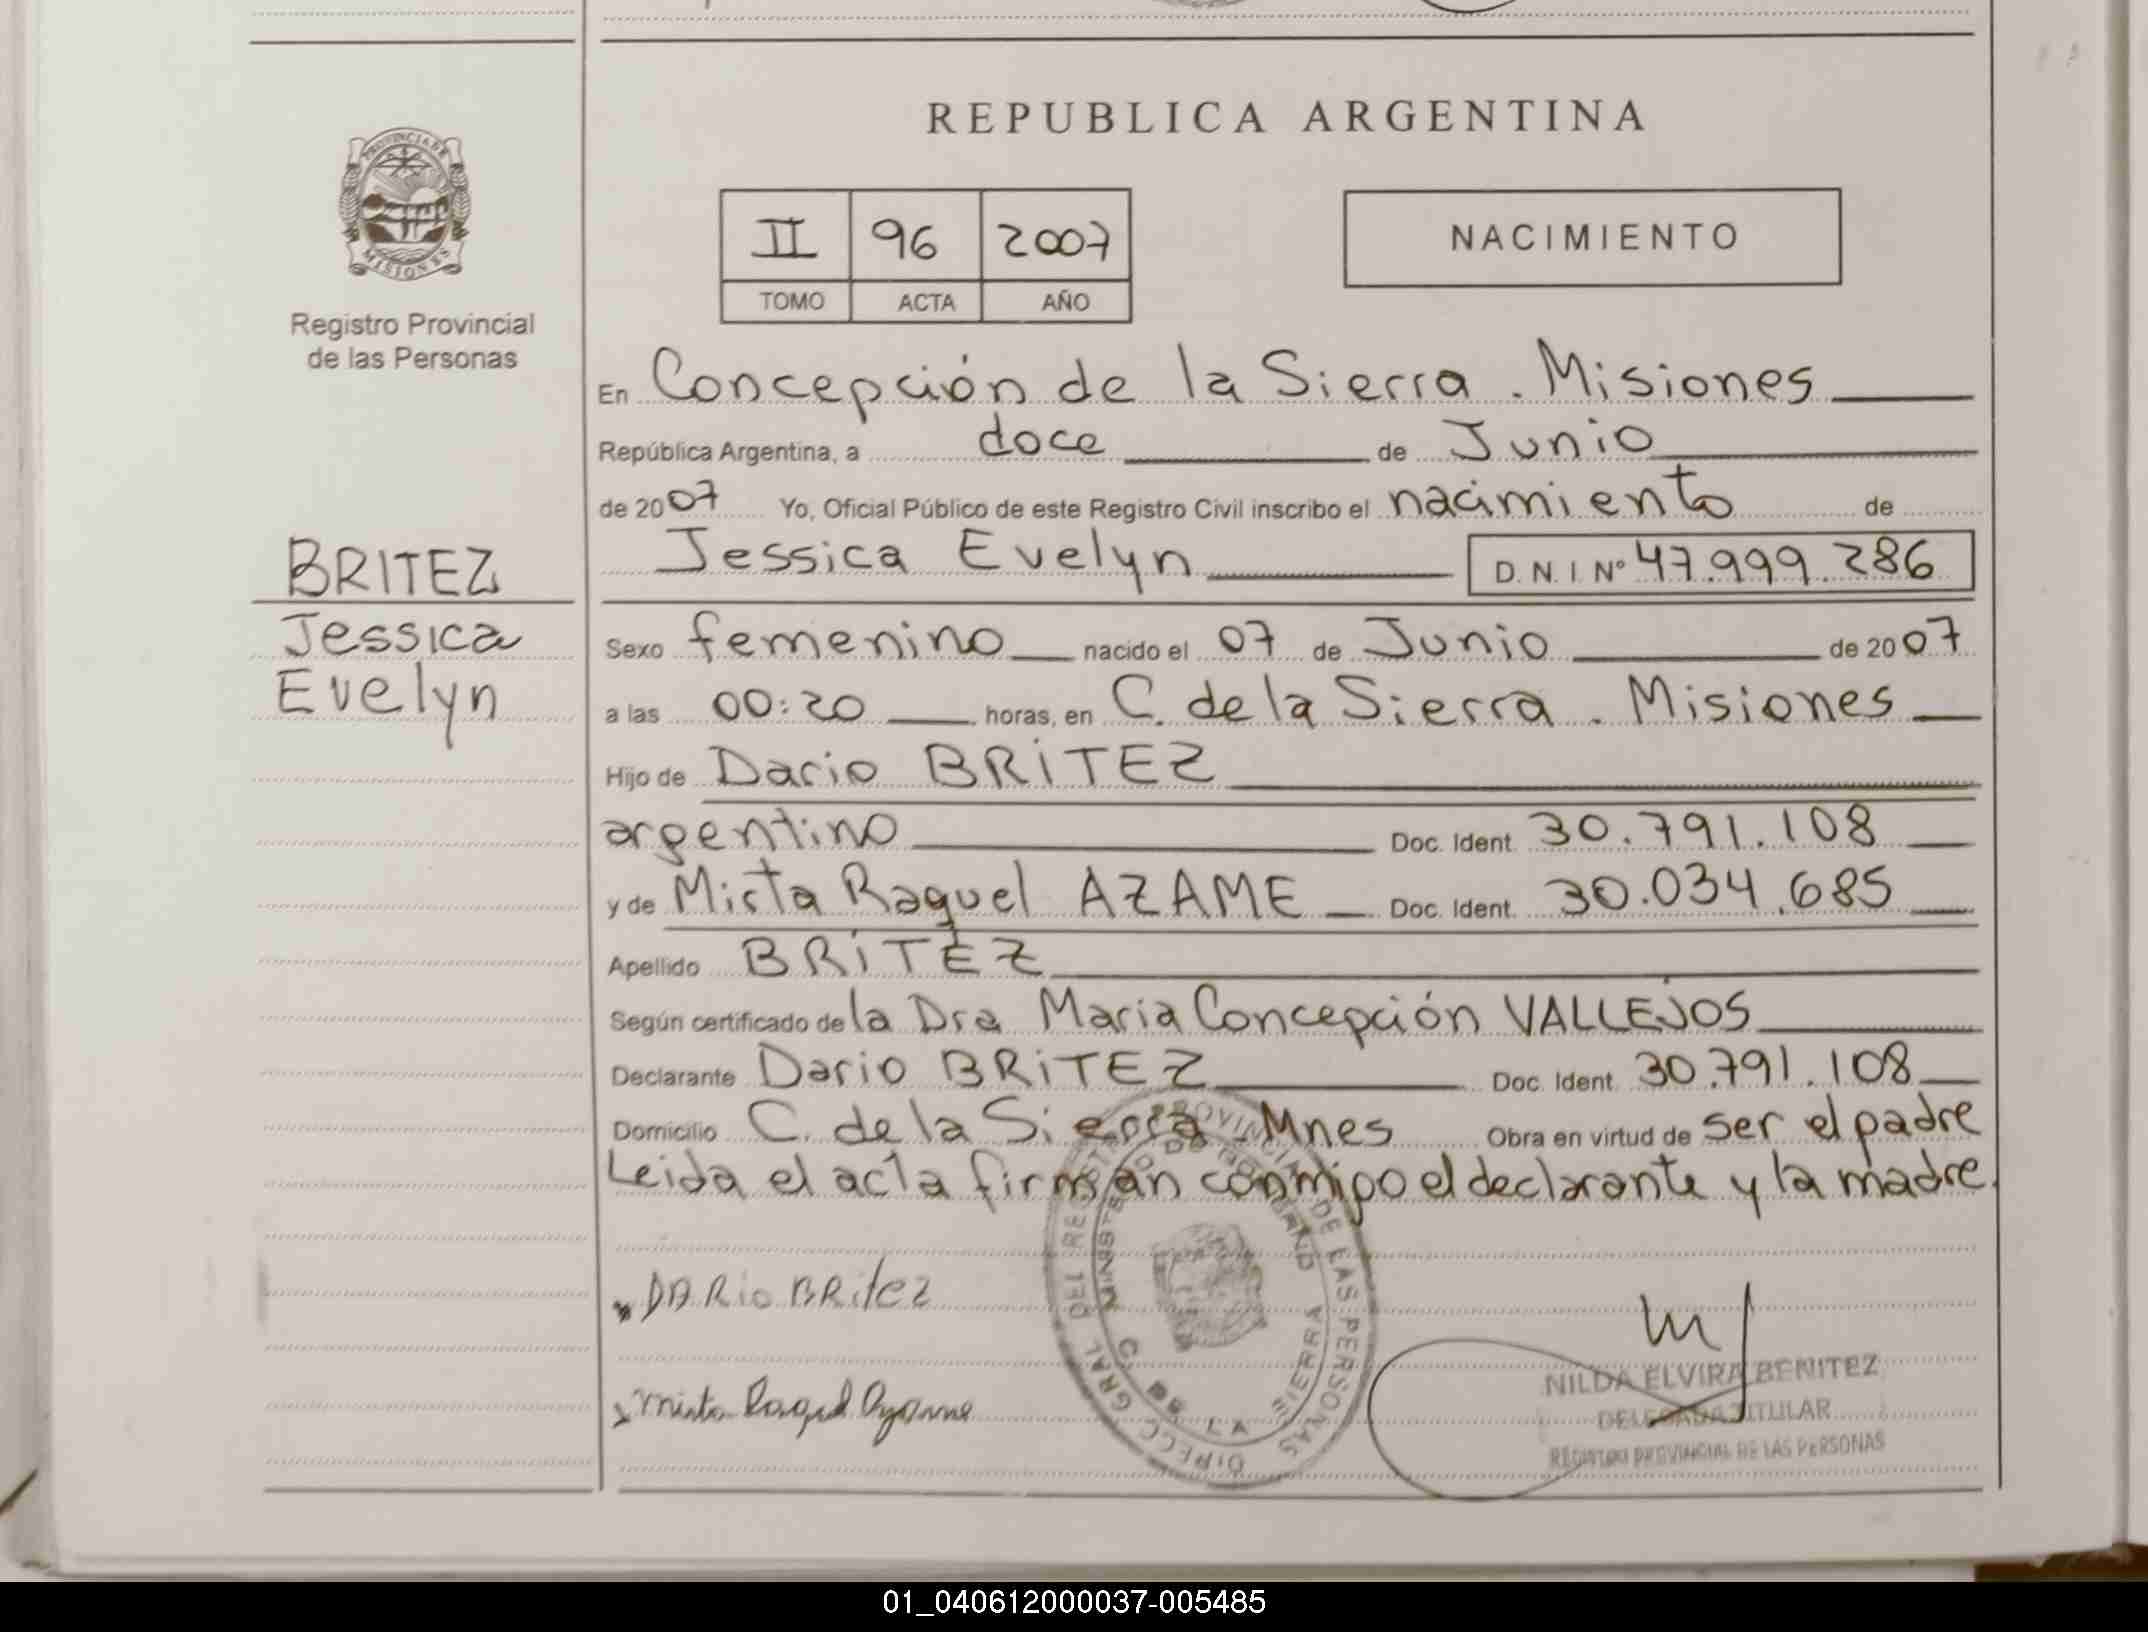 REPUBLICA ARGENTINA
PROVINCIA DE
MISIONES
Registro Provincial
de las Personas
II 96 2007
TOMO ACTA AÑO
NACIMIENTO
En Concepción de la Sierra . Misiones
República Argentina, a doce de Junio
de 2007 Yo, Oficial Público de este Registro Civil inscribo el nacimiento de
BRITEZ
Jessica
Evelyn
Jessica Evelyn D.N.I. Nº 47.999.286
Sexo femenino nacido el 07 de Junio de 2007
a las 00:20 horas, en C. de la Sierra . Misiones
Hijo de Dario BRITEZ
argentino Doc. Ident. 30.791.108
y de Mirta Raquel AZAME Doc. Ident. 30.034.685
Apellido BRITEZ
Según certificado de la Dra Maria Concepción VALLEJOS
Declarante Dario BRITEZ Doc. Ident. 30.791.108
Domicilio C. de la Sierra . Mnes Obra en virtud de ser el padre
Leida el acta firman conmigo el declarante y la madre.
DIRECC GRAL DEL REGISTRO PROVINCIAL DE LAS PERSONAS
MINISTERIO DE GOBIERNO
C. DE LA SIERRA
DARIO BRITEZ
Mirta Raquel
NILDA ELVIRA BENITEZ
DELEGADA TITULAR
REGISTRO PROVINCIAL DE LAS PERSONAS
01_040612000037-005485